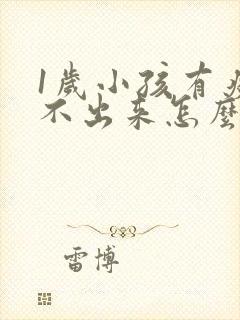 1歲小孩有痰
不出来怎麼
雷博